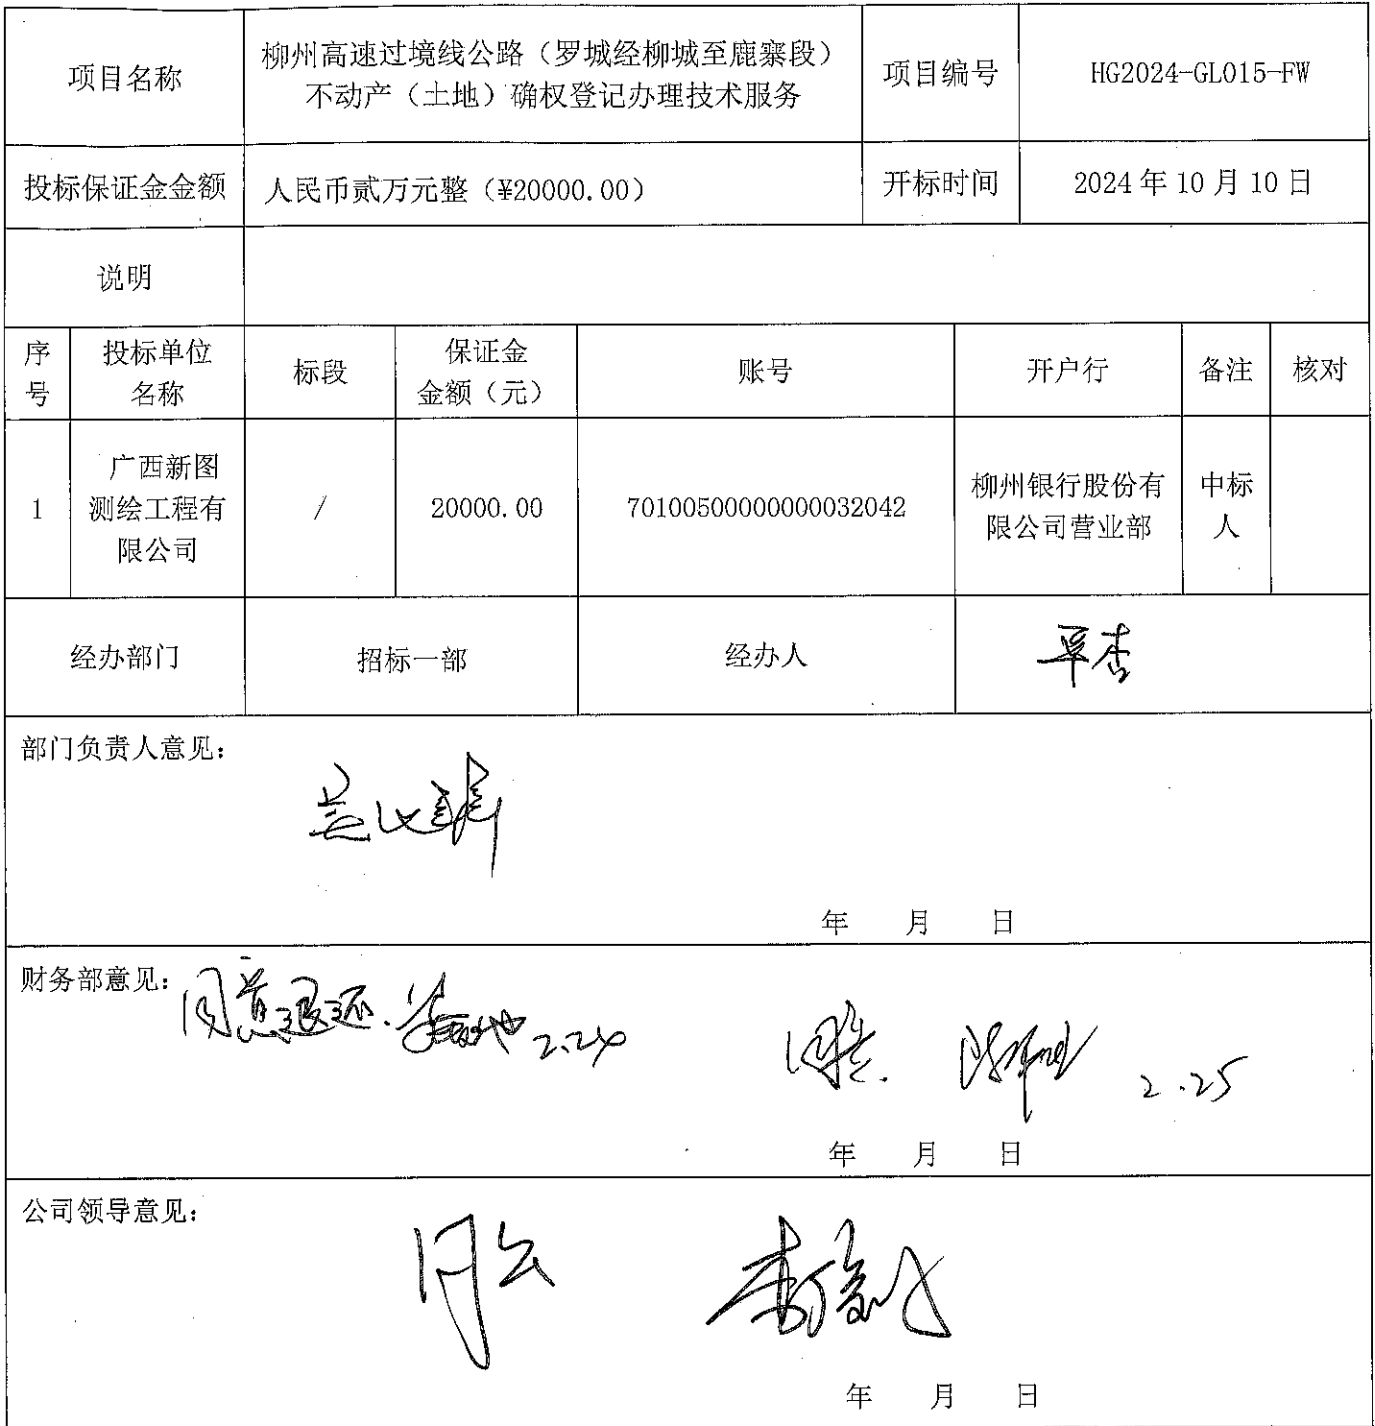 项目名称
柳州高速过境线公路（罗城经柳城至鹿寨段）
不动产（土地）确权登记办理技术服务
项目编号
HG2024-GL015-FW
投标保证金金额
人民币贰万元整（¥20000.00）
开标时间
2024年10月10日
说明
序
号
投标单位
名称
标段
保证金
金额（元）
账号
开户行
备注
核对
1
广西新图
测绘工程有
限公司
/
20000.00
70100500000000032042
柳州银行股份有
限公司营业部
中标
人
经办部门
招标一部
经办人
覃杏
部门负责人意见：
年 月 日
财务部意见：
同意退还. 2.24
同意. 2.25
年 月 日
公司领导意见：
同意
年 月 日